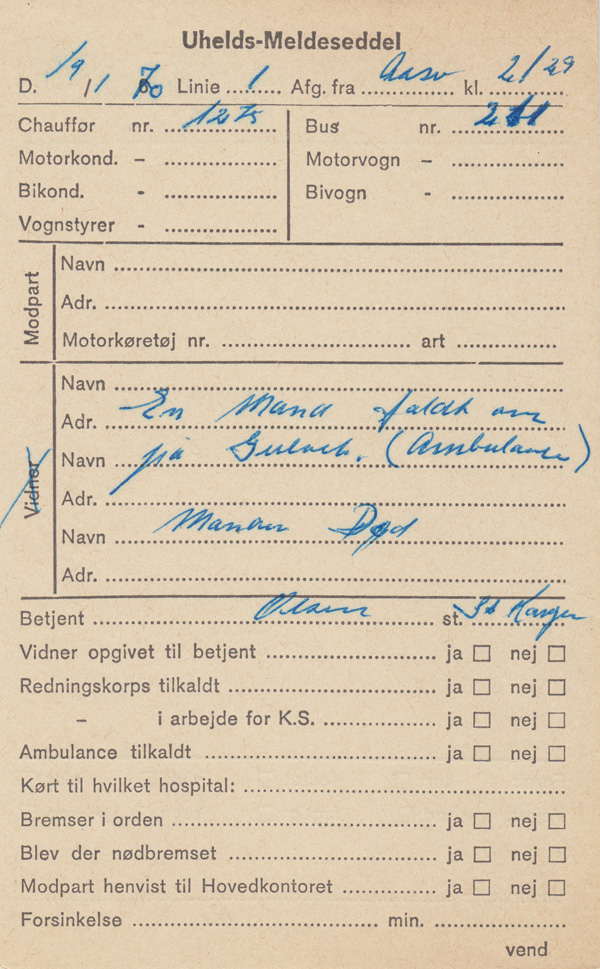 Uhelds-Meldeseddel
D. 19/1 70 Linie 1 Afg. fra kl. 2/29
Chauffør nr. 1275
Motorkond. -
Bikond. -
Vognstyrer -
Bus nr.
Motorvogn -
Bivogn -
Modpart
Navn
Adr.
Motorkøretøj nr. art
Vidner
Navn
Adr. En Mand faldt om
Navn på Gulvet. (Ambulance)
Adr.
Navn Manden Død
Adr.
Betjent Olsen st.
Vidner opgivet til betjent ja ☐ nej ☐
Redningskorps tilkaldt ja ☐ nej ☐
- i arbejde for K.S. ja ☐ nej ☐
Ambulance tilkaldt ja ☐ nej ☐
Kørt til hvilket hospital:
Bremser i orden ja ☐ nej ☐
Blev der nødbremset ja ☐ nej ☐
Modpart henvist til Hovedkontoret ja ☐ nej ☐
Forsinkelse min.
vend